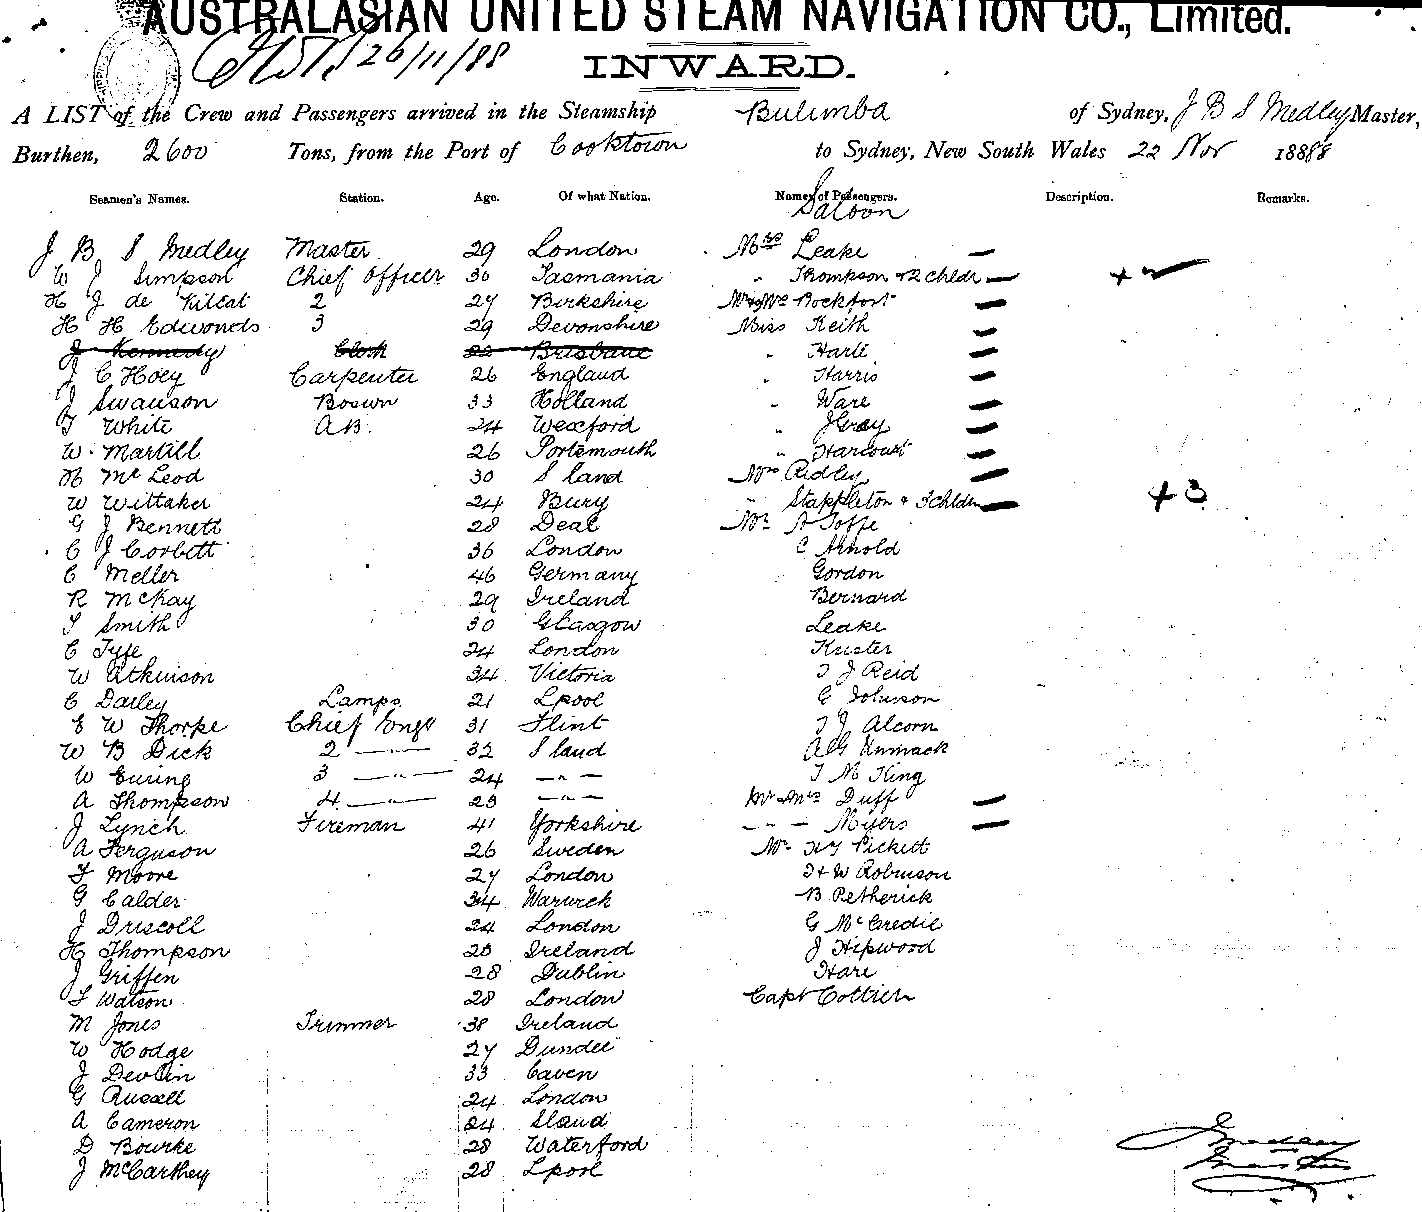 AUSTRALASIAN UNITED STEAM NAVIGATION CO., Limited.
26/11/88
INWARD.
A LIST of the Crew and Passengers arrived in the Steamship Bulimba of Sydney, J B S Medley Master,
Burthen, 2600 Tons, from the Port of Cooktown to Sydney, New South Wales 22 Nov 1888
Seamen's Names. Station. Age. Of what Nation. Names of Passengers. Description. Remarks.
Saloon
J B S Medley Master 29 London Mrs Leake —
W J Simpson Chief Officer 30 Tasmania " Thompson + 2 childr — +
H J de 2 27 Birkshire Mr & Mrs Rockfort —
H H Edwonds 3 29 Devonshire Miss Keith —
J Kennedy Clerk 22 Brisbane " Harle —
J C Hoey Carpenter 26 England " Harris —
J Swanson Bosun 33 Holland " Ware —
T White A.B. 24 Wexford " J Gray —
W. Martill 26 Portsmouth " Harcourt —
N McLeod 30 S land Mrs Ridley —
W Wittaker 24 Bury " Stappleton + 3 childn — + 3
G J Bennett 28 Deal Mr A Joppe
C J Corbett 36 London C Arnold
C Meller 46 Germany Gordon
R McKay 29 Ireland Bernard
S Smith 30 Glasgow Leake
C Tyfe 24 London Kuster
W Atkinson 34 Victoria T J Reid
C Dailey Lamps 21 Lpool G Johnson
E W Thorpe Chief Engr 31 Flint T J Alcorn
W B Dick 2 — " 32 S land A G Unmack
W Ewing 3 — " — 24 — " — T M King
A Thompson 4 — " 23 — " — Mr & Mrs Duff —
J Lynch Fireman 41 Yorkshire — — — Myers —
A Ferguson 26 Sweden Mr Pickett
F Moore 27 London J + W Robinson
G Calder 34 Warwick B Petherick
J Driscoll 24 London G McCredie
H Thompson 23 Ireland J Hipwood
J Griffen 28 Dublin Hare
F Watson 28 London Capt Cottier
M Jones Trimmer 38 Ireland
W Hodge 27 Dundee
J Devlin 33 Caven
G Russell 24 London
A Cameron 24 Sland
D Bourke 28 Waterford
J McCarthey 28 Lpool
J Medley
Master